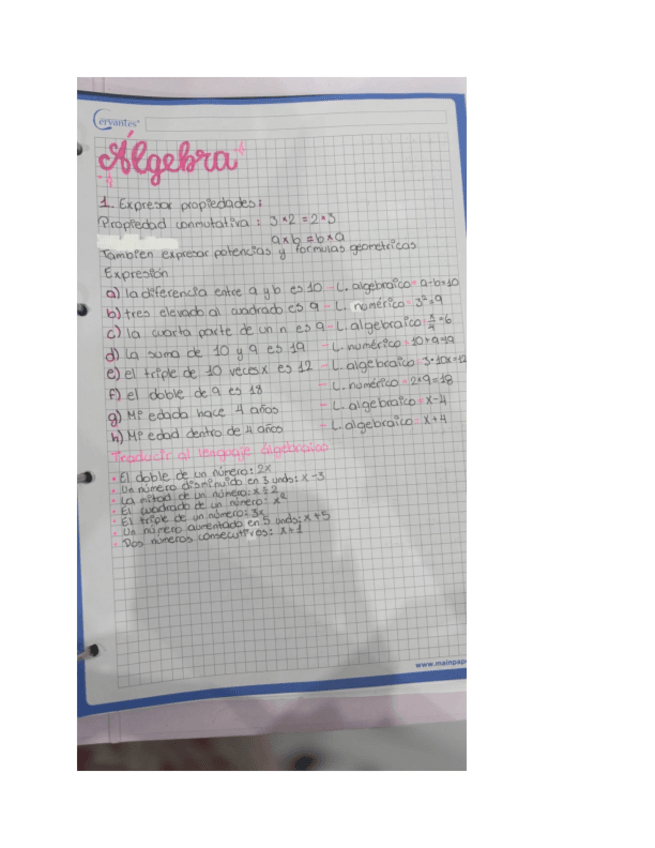 Cervantes
Álgebra
1. Expresar propiedades:
Propiedad conmutativa: 3*2=2*3
a*b=b*a
Tambien expresar potencias y formulas geometricas
Expresión
a) la diferencia entre a y b es 10 - L. algebraico= a-b=10
b) tres elevado al cuadrado es 9 - L. numérico= 3²=9
c) la cuarta parte de un n es 9 - L. algebraico: x/4=6
d) La suma de 10 y 9 es 19 - L. numérico=10+9=19
e) el triple de 10 veces x es 12 - L. algebraico: 3*10x=12
f) el doble de 9 es 18 - L. numérico=2*9=18
g) Mi edada hace 4 años - L. algebraico= x-4
h) Mi edad dentro de 4 años - L. algebraico= x+4
Traducir al lenguaje álgebraico
• El doble de un número: 2x
• Un número disminuido en 3 unds: x-3
• La mitad de un número: x÷2
• El cuadrado de un número: x²
• El triple de un número: 3x
• Un número aumentado en 5 unds: x+5
• Dos números consecutivos: x+1
www.mainpap